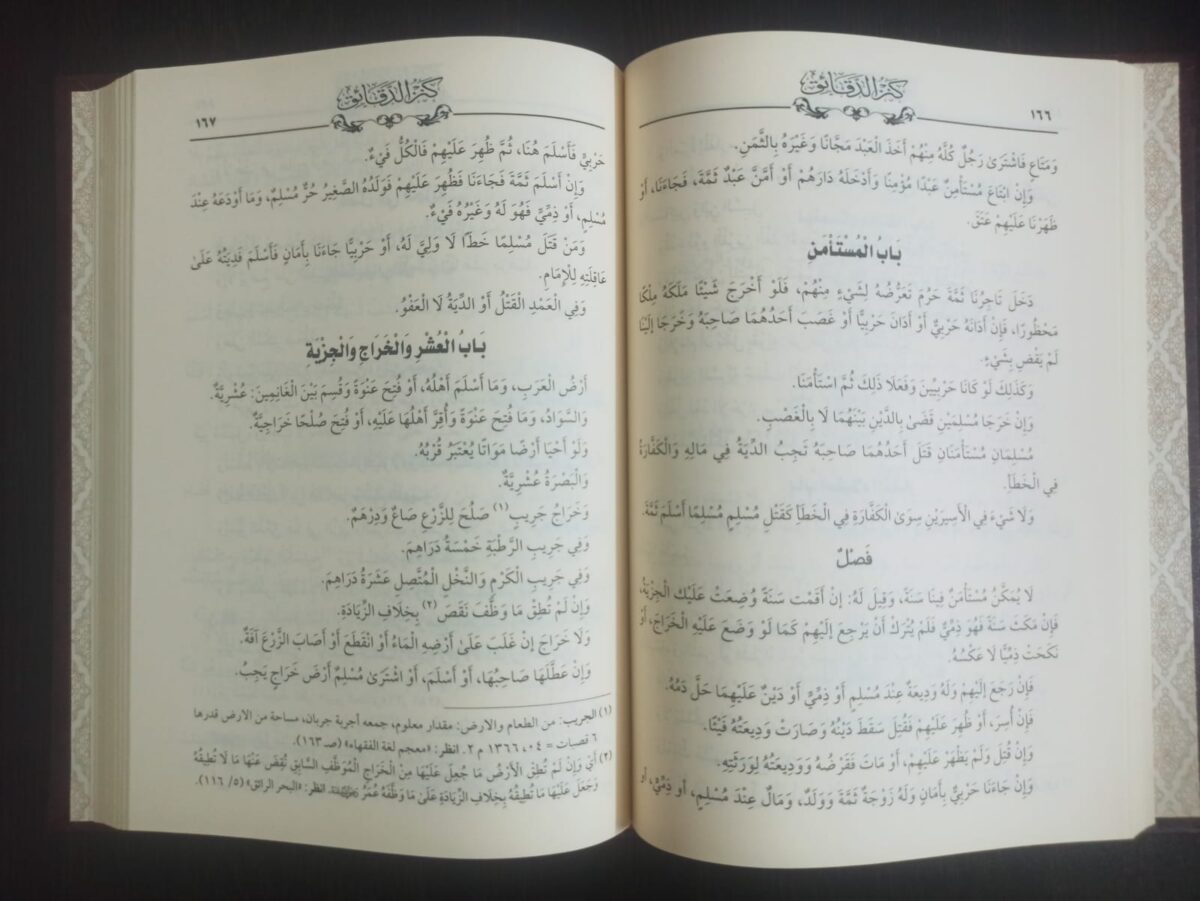 كنز الدقائق
١٦٦
وَمَتَاعٍ فَاشْتَرَىٰ رَجُلٌ كُلَّهُ مِنْهُمْ أَخَذَ الْعَبْدَ مَجَّانًا وَغَيْرَهُ بِالثَّمَنِ.
وَإِنْ ابْتَاعَ مُسْتَأْمِنٌ عَبْدًا مُؤْمِنًا وَأَدْخَلَهُ دَارَهُمْ أَوْ أَمَّنَ عَبْدٌ ثَمَّةَ، فَجَاءَنَا، أَوْ
ظَهَرْنَا عَلَيْهِمْ عَتَقَ.
بَابُ الْمُسْتَأْمَنِ
دَخَلَ تَاجِرُنَا ثَمَّةَ حَرُمَ تَعَرُّضُهُ لِشَيْءٍ مِنْهُمْ، فَلَوْ أَخْرَجَ شَيْئًا مَلَكَهُ مِلْكًا
مَحْظُورًا، فَإِنْ أَدَانَهُ حَرْبِيٌّ أَوْ أَدَانَ حَرْبِيًّا أَوْ غَصَبَ أَحَدُهُمَا صَاحِبَهُ وَخَرَجَا إِلَيْنَا
لَمْ يَقْضِ بِشَيْءٍ.
وَكَذَلِكَ لَوْ كَانَا حَرْبِيَّيْنِ وَفَعَلَا ذَلِكَ ثُمَّ اسْتَأْمَنَا.
وَإِنْ خَرَجَا مُسْلِمَيْنِ قَضَىٰ بِالدَّيْنِ بَيْنَهُمَا لَا بِالْغَصْبِ.
مُسْلِمَانِ مُسْتَأْمَنَانِ قَتَلَ أَحَدُهُمَا صَاحِبَهُ تَجِبُ الدِّيَةُ فِي مَالِهِ وَالْكَفَّارَةُ
فِي الْخَطَأِ.
وَلَا شَيْءَ فِي الْأَسِيرَيْنِ سِوَىٰ الْكَفَّارَةِ فِي الْخَطَأِ كَقَتْلِ مُسْلِمٍ مُسْلِمًا أَسْلَمَ ثَمَّةَ.
فَصْلٌ
لَا يُمَكَّنُ مُسْتَأْمَنٌ فِينَا سَنَةً، وَقِيلَ لَهُ: إِنْ أَقَمْت سَنَةً وُضِعَتْ عَلَيْك الْجِزْيَةُ،
فَإِنْ مَكَثَ سَنَةً فَهُوَ ذِمِّيٌّ فَلَمْ يُتْرَكْ أَنْ يَرْجِعَ إِلَيْهِمْ كَمَا لَوْ وَضَعَ عَلَيْهِ الْخَرَاجَ، أَوْ
نَكَحَتْ ذِمِّيًّا لَا عَكْسُهُ.
فَإِنْ رَجَعَ إِلَيْهِمْ وَلَهُ وَدِيعَةٌ عِنْدَ مُسْلِمٍ أَوْ ذِمِّيٍّ أَوْ دَيْنٌ عَلَيْهِمَا حَلَّ دَمُهُ.
فَإِنْ أُسِرَ، أَوْ ظُهِرَ عَلَيْهِمْ فَقُتِلَ سَقَطَ دَيْنُهُ وَصَارَتْ وَدِيعَتُهُ فَيْئًا.
وَإِنْ قُتِلَ وَلَمْ يَظْهَرْ عَلَيْهِمْ، أَوْ مَاتَ فَقَرْضُهُ وَوَدِيعَتُهُ لِوَرَثَتِهِ.
وَإِنْ جَاءَنَا حَرْبِيٌّ بِأَمَانٍ وَلَهُ زَوْجَةٌ ثَمَّةَ وَوَلَدٌ، وَمَالٌ عِنْدَ مُسْلِمٍ، أَوْ ذِمِّيٍّ، أَوْ
كنز الدقائق
١٦٧
حَرْبِيٍّ فَأَسْلَمَ هُنَا، ثُمَّ ظُهِرَ عَلَيْهِمْ فَالْكُلُّ فَيْءٌ.
وَإِنْ أَسْلَمَ ثَمَّةَ فَجَاءَنَا فَظُهِرَ عَلَيْهِمْ فَوَلَدُهُ الصَّغِيرُ حُرٌّ مُسْلِمٌ، وَمَا أَوْدَعَهُ عِنْدَ
مُسْلِمٍ، أَوْ ذِمِّيٍّ فَهُوَ لَهُ وَغَيْرُهُ فَيْءٌ.
وَمَنْ قَتَلَ مُسْلِمًا خَطَأً لَا وَلِيَّ لَهُ، أَوْ حَرْبِيًّا جَاءَنَا بِأَمَانٍ فَأَسْلَمَ فَدِيَتُهُ عَلَىٰ
عَاقِلَتِهِ لِلْإِمَامِ.
وَفِي الْعَمْدِ الْقَتْلُ أَوْ الدِّيَةُ لَا الْعَفْوُ.
بَابُ الْعُشْرِ وَالْخَرَاجِ وَالْجِزْيَةِ
أَرْضُ الْعَرَبِ، وَمَا أَسْلَمَ أَهْلُهُ، أَوْ فُتِحَ عَنْوَةً وَقُسِمَ بَيْنَ الْغَانِمِينَ: عُشْرِيَّةٌ.
وَالسَّوَادُ، وَمَا فُتِحَ عَنْوَةً وَأُقِرَّ أَهْلُهَا عَلَيْهِ، أَوْ فُتِحَ صُلْحًا خَرَاجِيَّةٌ.
وَلَوْ أَحْيَا أَرْضًا مَوَاتًا يُعْتَبَرُ قُرْبُهُ.
وَالْبَصْرَةُ عُشْرِيَّةٌ.
وَخَرَاجُ جَرِيبٍ (١) صَلُحَ لِلزَّرْعِ صَاعٌ وَدِرْهَمٌ.
وَفِي جَرِيبِ الرَّطْبَةِ خَمْسَةُ دَرَاهِمَ.
وَفِي جَرِيبِ الْكَرْمِ وَالنَّخْلِ الْمُتَّصِلِ عَشَرَةُ دَرَاهِمَ.
وَإِنْ لَمْ تُطِقْ مَا وَظَّفَ نَقَصَ (٢) بِخِلَافِ الزِّيَادَةِ.
وَلَا خَرَاجَ إِنْ غَلَبَ عَلَىٰ أَرْضِهِ الْمَاءُ أَوْ انْقَطَعَ أَوْ أَصَابَ الزَّرْعَ آفَةٌ.
وَإِنْ عَطَّلَهَا صَاحِبُهَا، أَوْ أَسْلَمَ، أَوْ اشْتَرَىٰ مُسْلِمٌ أَرْضَ خَرَاجٍ يَجِبُ.
(١) الجريب: من الطعام والارض: مقدار معلوم، جمعه أجربة جربان، مساحة من الارض قدرها
٦ قصبات = ١٣٦٦،٠٤ م ٢. انظر: «معجم لغة الفقهاء» (صـ ١٦٣).
(٢) أَيْ وَإِنْ لَمْ تُطِقْ الْأَرْضُ مَا جُعِلَ عَلَيْهَا مِنْ الْخَرَاجِ الْمُوَظَّفِ السَّابِقِ نُقِصَ عَنْهَا مَا لَا تُطِيقُهُ
وَجَعَلَ عَلَيْهَا مَا تُطِيقُهُ بِخِلَافِ الزِّيَادَةِ عَلَىٰ مَا وَظَّفَهُ عُمَرُ انظر: «البحر الرائق» (٥/ ١١٦).